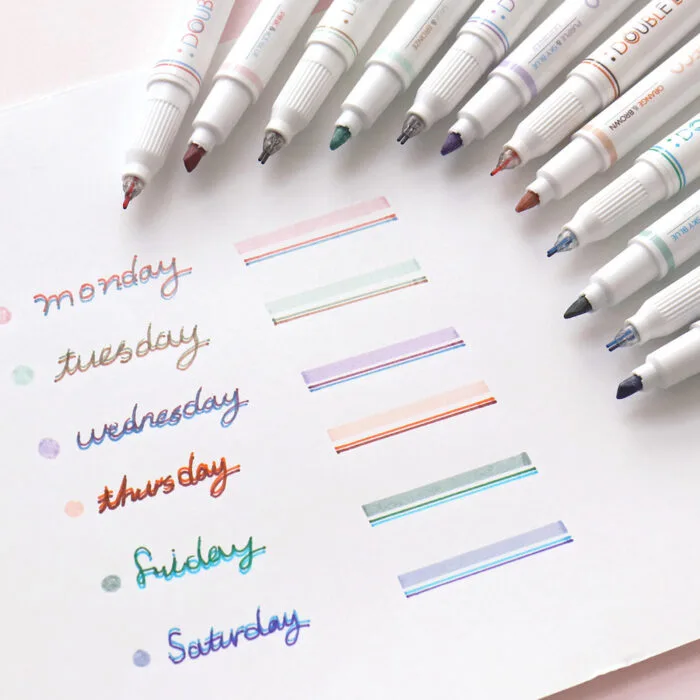 DOUBLE
& BRONZE
PURPLE & SKY BLUE
DOUBLE
ORANGE & BROWN
SKY BLUE
monday
tuesday
wednesday
thursday
friday
Saturday